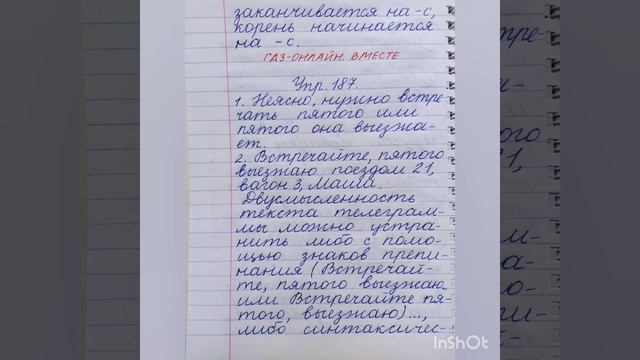 заканчивается на -с,
корень начинается
на -с.
ГДЗ-ОНЛАЙН. ВМЕСТЕ
Упр. 187.
1. Неясно, нужно встре-
чать пятого или
пятого она выезжа-
ет.
2. Встречайте, пятого
выезжаю поездом 21,
вагон 3, Маша.
Двусмысленность
текста телеграм-
мы можно устра-
нить либо с помо-
щью знаков препи-
нания (Встречай-
те, пятого выезжаю
или Встречайте пя-
того, выезжаю)...,
либо синтаксичес-
InShOt